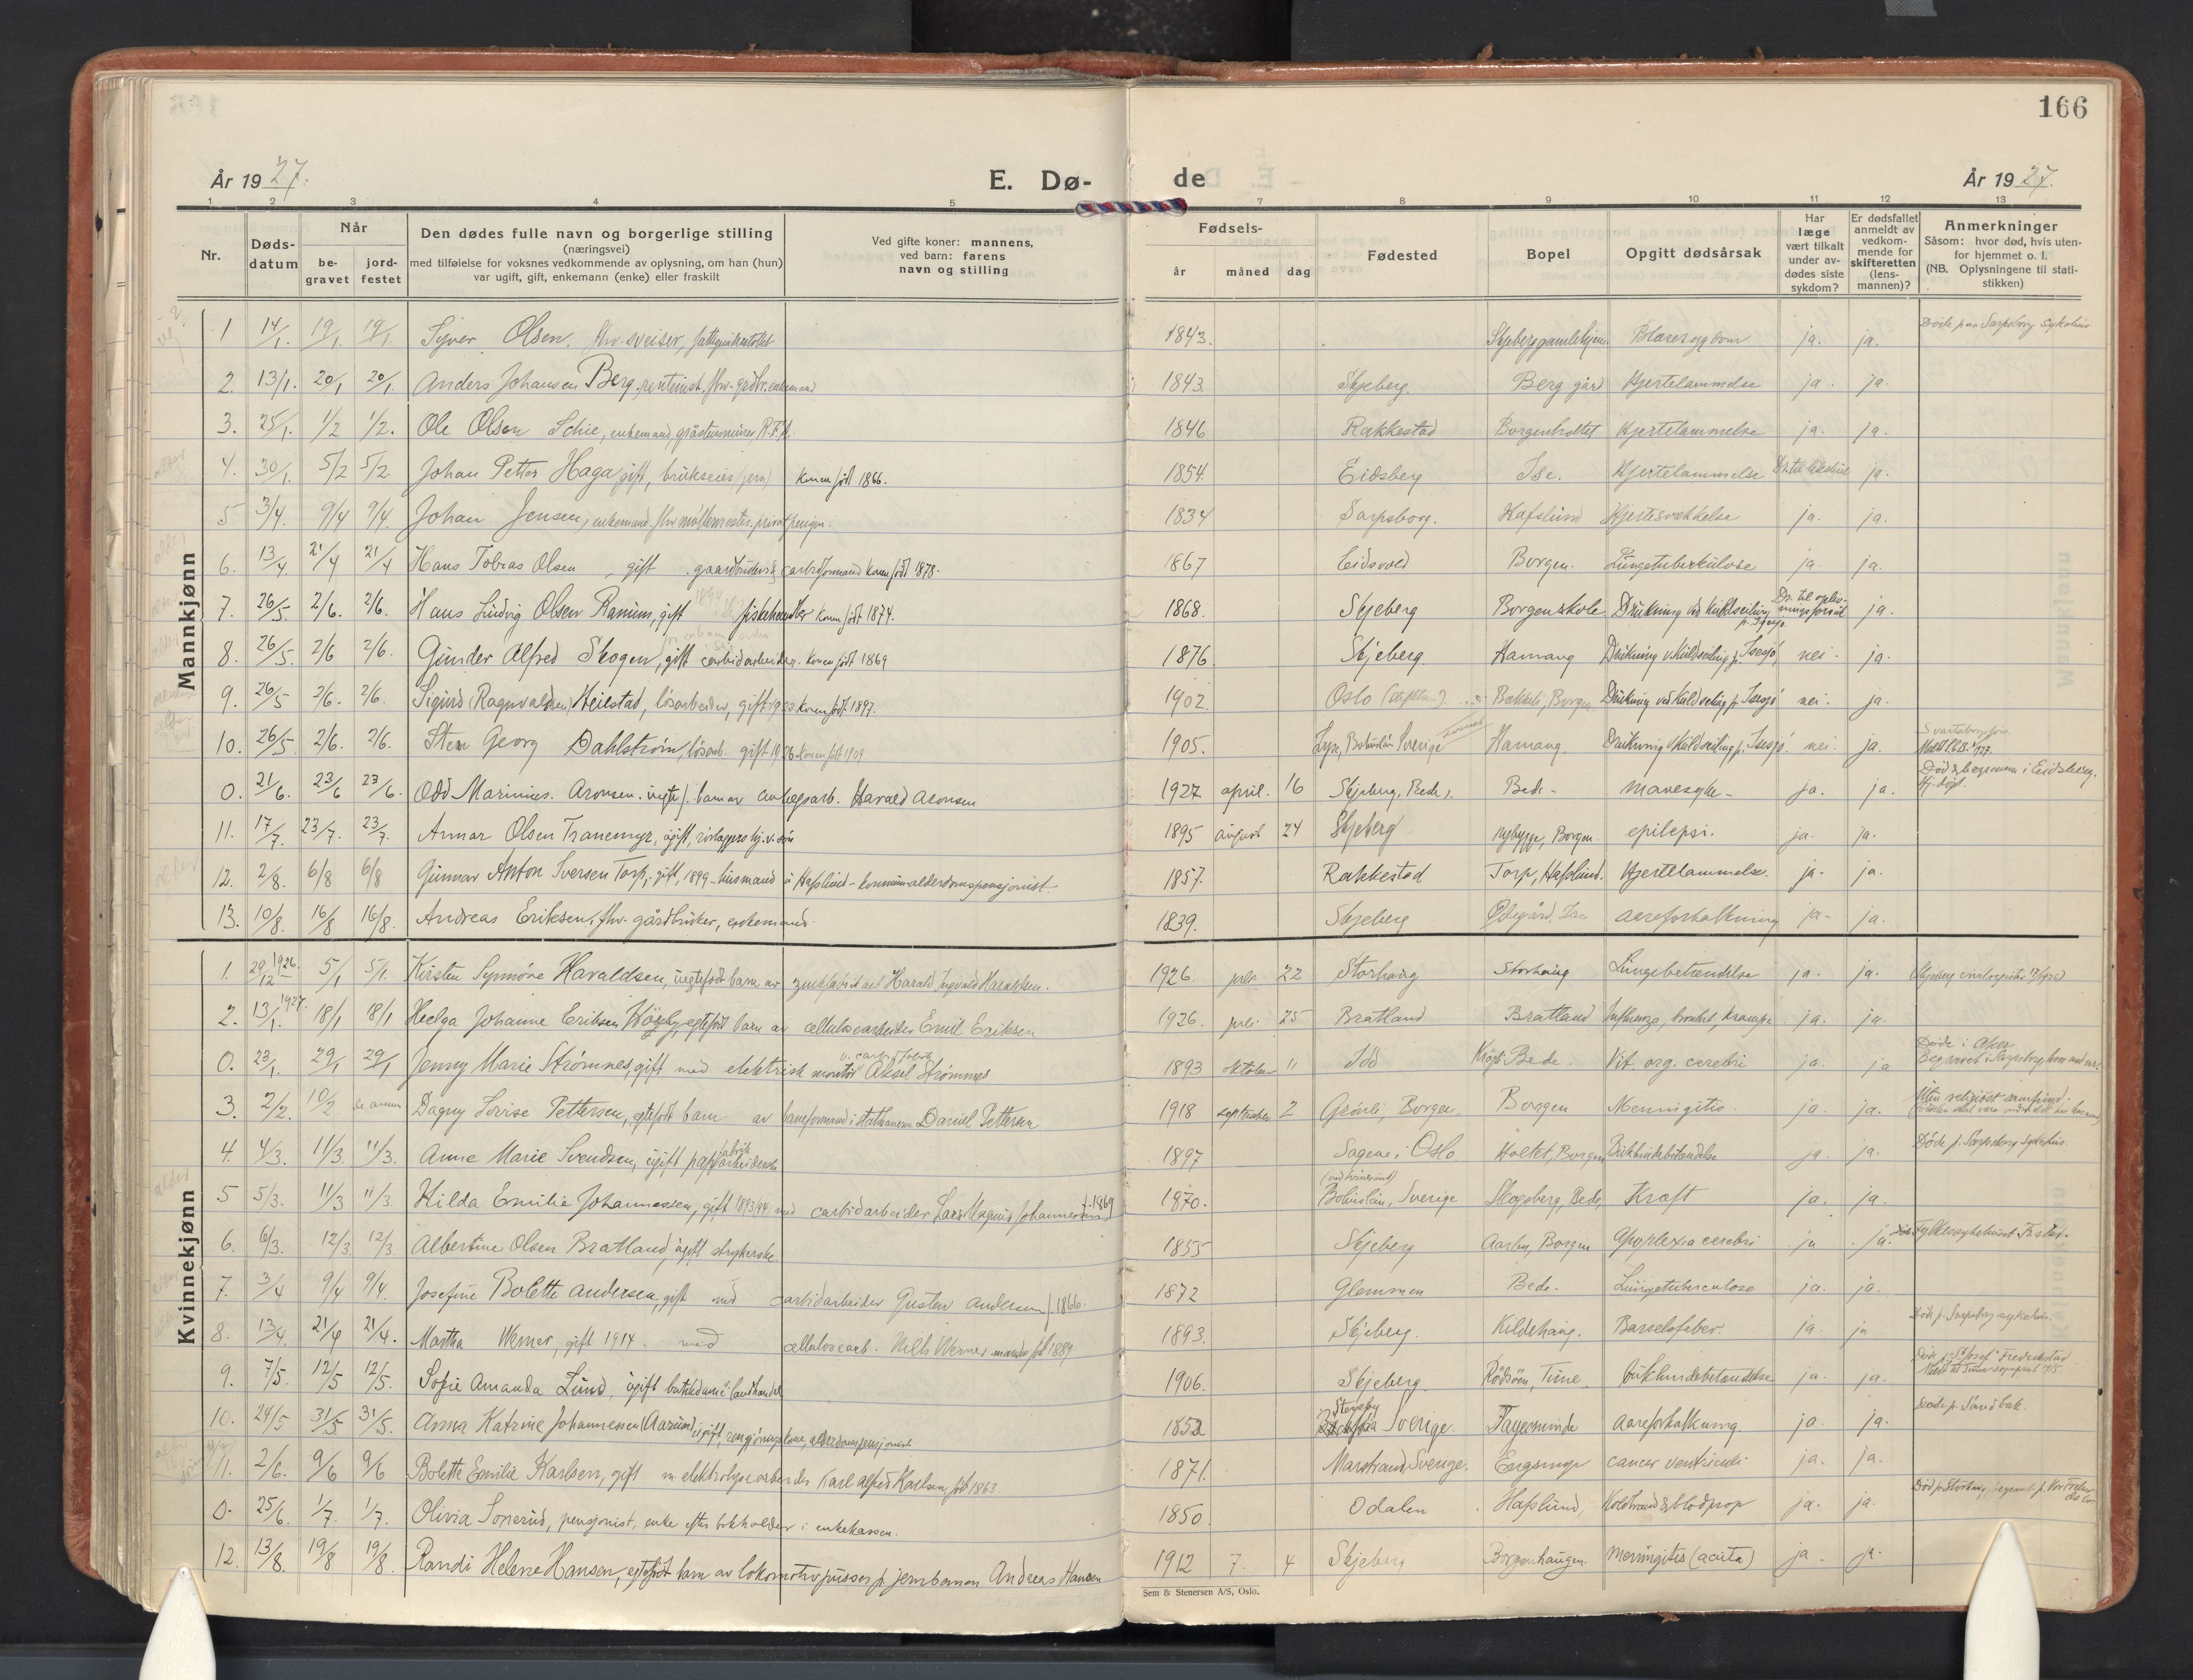 166
År 1927.
E. Dø-
de
År 1927.
1 2 3 4 5 7 8 9 10 11 12 13
Nr.
Døds-datum
Når
be-gravet
jord-festet
Den dødes fulle navn og borgerlige stilling
(næringsvei)
med tilføielse for voksnes vedkommende av oplysning, om han (hun)
var ugift, gift, enkemann (enke) eller fraskilt
Ved gifte koner: mannens,
ved barn: farens
navn og stilling
Fødsels-
år måned dag
Fødested
Bopel
Opgitt dødsårsak
Har læge vært tilkalt under av-dødes siste sykdom?
Er dødsfallet anmeldt av vedkom-mende for skifteretten (lens-mannen)?
Anmerkninger
Såsom: hvor død, hvis uten-for hjemmet o. l.
(NB. Oplysningene til stati-stikken)
Mannkjønn
1 14/1. 19/1. 19/1. Syver Olsen. fhv. sveiser, fattigunderstøttet 1843. Skjeberg gamlehjem. Blæresygdom ja. ja. Døde paa Sarpsborg sykehus
2. 13/1. 20/1 20/1. Anders Johansen Berg, rentenist, fhv. gårdbr. enkemand 1843. Skjeberg. Berg gård Hjertelammelse ja. ja.
3. 25/1. 1/2 1/2. Ole Olsen Schie, enkemand, gråstensmurer, R.F.A. 1846 Rakkestad Borgenholtet Hjertelammelse ja. ja.
4. 30/1. 5/2 5/2. Johan Petter Haga, gift, brukseier (jern) Konen født 1866. 1854. Eidsberg Ise. Hjertelammelse ja.
5 3/4. 9/4 9/4. Johan Jensen, enkemand. fhv. møllemester. privat pensjon. 1834 Sarpsborg. Hafslund Hjertesvækkelse ja. ja.
6. 13/4. 21/4 21/4 Hans Tobias Olsen, gift. gaardbruker & arbeidsformand Konen født 1878. 1867 Eidsvold Borgen. Lungetuberkulose ja. ja.
7. 26/5. 2/6. 2/6. Hans Ludvig Olsen Ramum, gift fiskehandler Konen født 1874. 1868. Skjeberg Borgen skole Drukning ved kuldseiling p. Isesjø. Dr. til opliv-ningsforsøk ja.
8. 26/5. 2/6 2/6. Gunder Alfred Skogen, gift carbidarbeider. Konen født 1869 1876 Skjeberg Hamang Drukning v. kuldseiling p. Isesjø nei. ja.
9. 26/5 2/6. 2/6. Sigurd (Ragnvaldsen) Heiestad, løsarbeider, gift 1923 Konen født 1897. 1902 Oslo Bakkeli, Borgen. Drukning ved kuldseiling p. Isesjø nei. ja.
10. 26/5 2/6. 2/6. Sten Georg Dahlstrøm, løsarb. gift 1926 Konen født 1909 1905. Lyse, Bohuslän Sverige Hamang. Drukning v. kuldseiling p. Isesjø nei. ja.
0. 21/6. 23/6 23/6. Odd Marinius Aronsen. uegte f. barn av anlegsarb. Harald Aronsen 1927 april. 16 Skjeberg, Bede. Bede - mavesyke - ja. ja. Død & begraven i Eidsberg.
11. 17/7. 23/7. 23/7. Arnar Olsen Tranemyr, ugift, rørlæggers hj. v. søn 1895 august 24 Skjeberg nybygge, Borgen. epilepsi. ja. ja.
12. 2/8. 6/8 6/8 Gunnar Anton Iversen Torp, gift, 1899 - husmand u Hafslund - kommunalderdomspensjonist - 1857. Rakkestad Torp, Hafslund. Hjertelammelse. ja. ja.
13. 10/8. 16/8 16/8. Andreas Eriksen, fhv. gårdbruker, enkemand. 1839. Skjeberg Østegård, Ise aareforkalkning ja - ja.
Kvinnekjønn
1. 29/12 1926. 5/1 5/1. Kirsten Synnøve Haraldsen, uegtefødt barn av zinkfabrikarb Harald Ingvald Haraldsen. 1926. juli 22 Storhaug Storhaug Lungebetændelse ja. ja.
2. 13/1. 1927. 18/1 18/1 Helga Johanne Eriksen Høyby, egtefødt barn av cellulosearbeider Emil Eriksen 1926. juli 25 Bratland Bratland Influenza, bronkit, Krampe. ja. ja.
0. 23/1. 29/1 29/1 Jenny Marie Strømnes, gift med elektrisk montør Aksel Strømnes 1893 oktober 11 Idd Bede. Vit. org. cerebri ja. ja Døde i Aker
3. 2/2. 10/2 Dagny Lovise Pettersen, egtefødt barn av baneformand i statsbanen Daniel Pettersen 1918 september 2 Grønli, Borgen. Borgen Meningitis. ja. ja.
4. 4/3. 11/3. 11/3. Anne Marie Svendsen, ugift papfabrikarbeiderske 1897 Sagene i Oslo Holtet, Borgen Bukhindebetændelse ja. ja. Døde p. Sarpsborg sykehus.
5 5/3. 11/3 11/3. Hilda Emilie Johannessen, gift 1893 med carbidarbeider Lars Magnus Johannessen f. 1869 1870. Bohuslän, Sverige Skogsberg, Bede, Kræft ja. ja.
6. 6/3. 12/3 12/3. Albertine Olsen Bratland, ugift strykerske 1855 Skjeberg Aarby, Borgen Apoplexia cerebri ja. ja.
7. 3/4 9/4 9/4. Josefine Bolette Andersen, gift med carbidarbeider Gustav Andersen f. 1866. 1872 Glemmen Bede. Lungetuberculose ja. ja.
8. 13/4. 21/4 21/4. Martha Werner, gift 1914. med cellulosearb. Nils Werner manden født 1889 1893. Skjeberg. Kildehaug. Barselfeber. ja. ja Døde p. Sarpsborg sykehus.
9. 7/5. 12/5 12/5. Sofie Amanda Lund, ugift butikkdame i landhandel 1906. Skjeberg. Rødsøen, Tune. bukhindebetændelse ja. ja.
10. 24/5 31/5 31/5. Anna Katrine Johannessen (Aarum) ugift, rengjøringskone, alderdomspensjonist 1852 Sverige Fagermunde Aareforkalkning. ja. ja. Døde p. Sandbak.
11. 2/6. 9/6 9/6 Bolette Emilie Karlsen, gift m. elektrolysearbeider Karl Alfred Karlsen, født 1863 1871. Marstrand, Sverige. Engsmyr cancer ventriculi ja. ja.
0. 25/6 1/7. 1/7. Olivia Sonerud, pensjonist, enke efter bokholder i enkekassen. 1850. Odalen Hafslund, Koldbrand & blodprop ja. ja.
12. 13/8. 19/8 19/8. Randi Helene Hansen, egtefødt barn av lokomotivpusser p. jernbanen Andreas Hansen 1912 7. 4 Skjeberg Borgenhaugen. meningitis (acuta) ja. ja.
Sem & Stenersen A/S, Oslo.